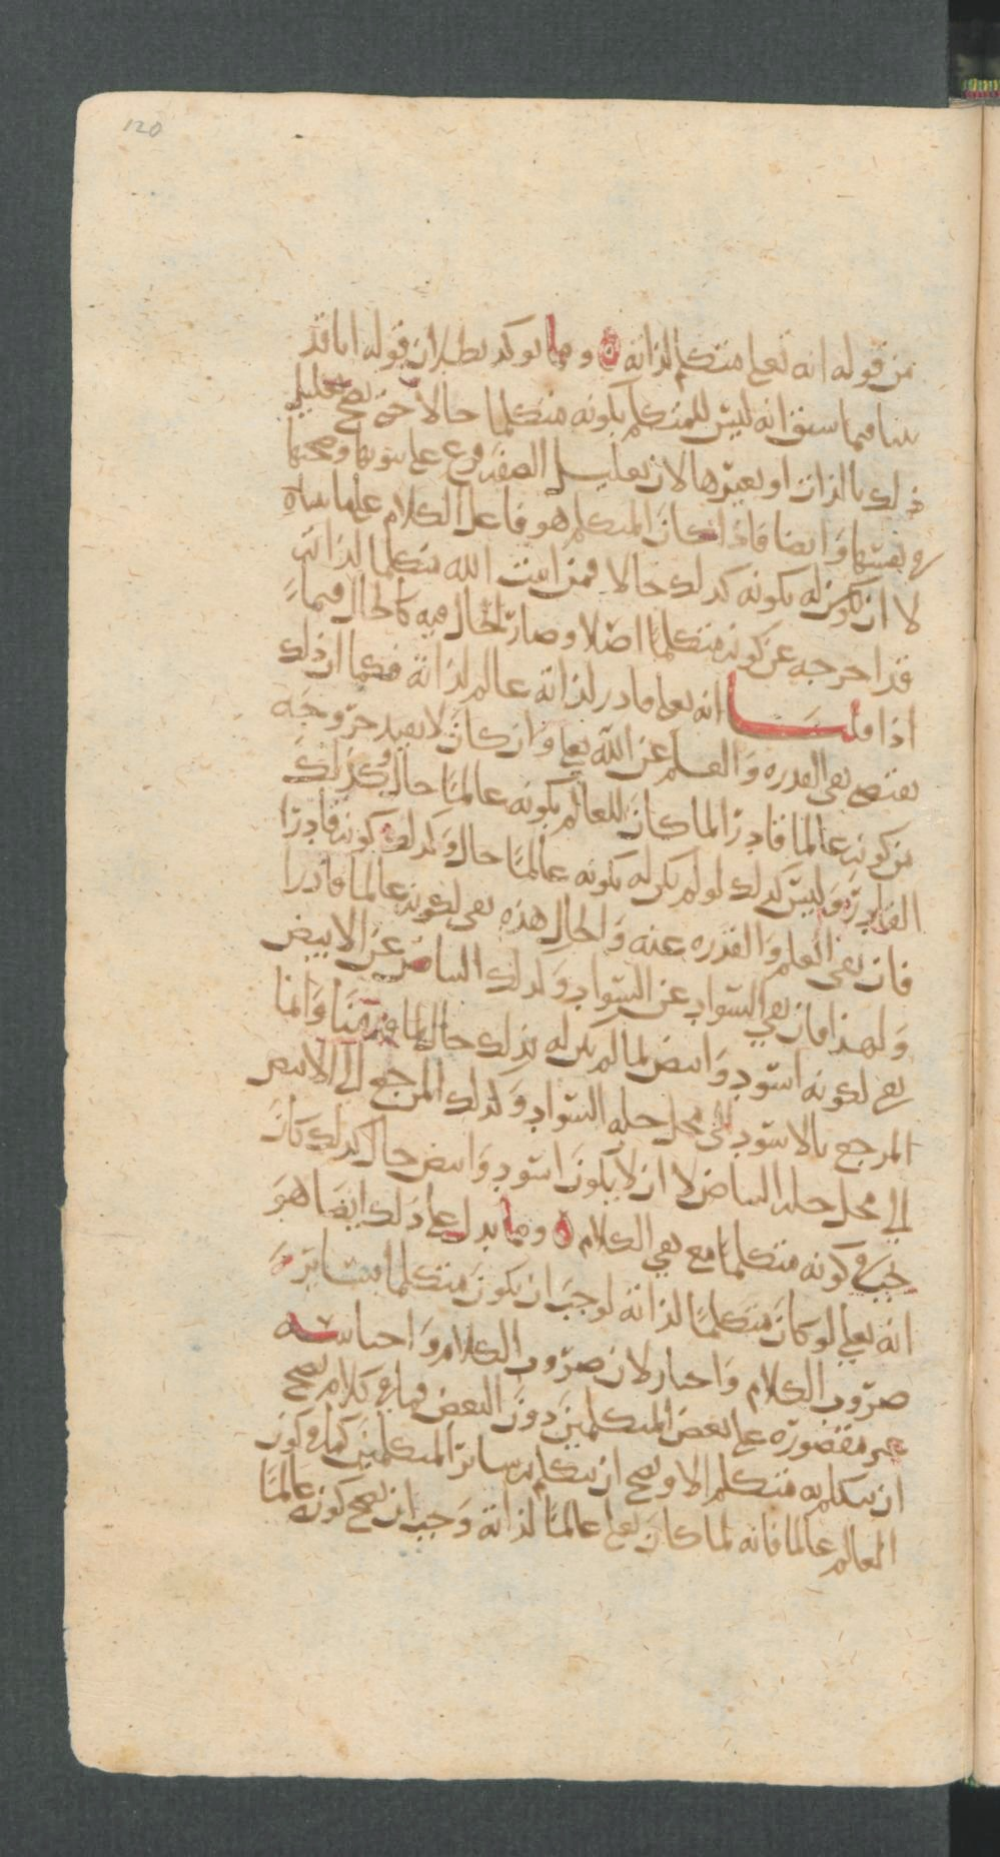 120
من قوله انه تعلى متكلم لذاته ه ومما يوكد بطلان قوله انا قد
بينا فيما سبق انه ليس للمتكلم بكونه متكلما حالا حتى يصح تعليل
ذلك بالذات او بغيرها لان تعليل الصفة فرع على ثبوتها وصحتها
في نفسها وايضا فاذا كان المتكلم هو فاعل الكلام على ما بيناه
لا ان يكون له بكونه كذلك حالا فمن اثبت الله متكلما لذاته
قد اخرجه عن كونه متكلما اصلا وصار الحال فيه كالحال فيما
اذا قلنا انه تعلى قادر لذاته عالم لذاته فكما ان ذلك
يقتضي نفي القدرة والعلم عن الله تعلى وان كان لا يفيد خروجه
من كونه عالما قادرا لما كان للعالم بكونه عالما حال وكذلك
القادر وليس كذلك لو لم يكن له بكونه عالما حال وكذلك كونه قادرا
فان نفي العلم والقدرة عنه والحال هذه نفي لكونه عالما قادرا
ولهذا فان نفي السواد عن السواد وكذلك البياض عن الابيض
نفي لكونه اسود وابيض لما لم يكن له بذلك حال وانما
المرجع بالاسود الى محل حله السواد وكذلك المرجع الى الابيض
الى محل حله البياض لا ان لا يكون اسود وابيض حال كذلك كان
يجب في كونه متكلما مع نفي الكلام ه ومما يدل على ذلك ايضا هو
انه تعلى لو كان متكلما لذاته لوجب ان يكون متكلما بسائر
ضروب الكلام واخبار لان ضروب الكلام واجناسه
غير مقصوره على بعض المتكلمين دون البعض فما من كلام يصح
ان يتكلم به متكلم الا ويصح ان يتكلم به سائر المتكلمين كما في كون
العالم عالما فانه لما كان تعلى عالما لذاته وجب ان يصح كونه عالما